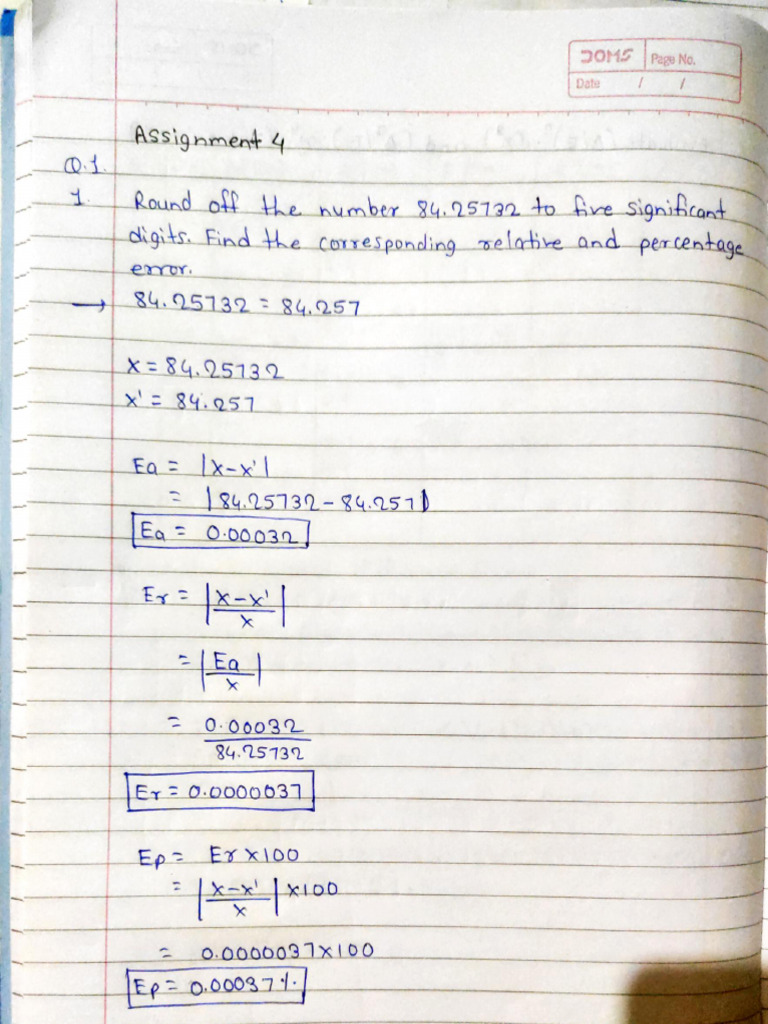 DOMS Page No.
Date / /
Assignment 4
Q.1.
1. Round off the number 84.25732 to five significant
digits. Find the corresponding relative and percentage
error.
→ 84.25732 = 84.257
x = 84.25732
x' = 84.257
Ea = |x-x'|
= |84.25732 - 84.257|
Ea = 0.00032
Er = |x-x'/x|
= |Ea/x|
= 0.00032/84.25732
Er = 0.0000037
Ep = Er x100
= |x-x'/x| x100
= 0.0000037x100
Ep = 0.00037%.